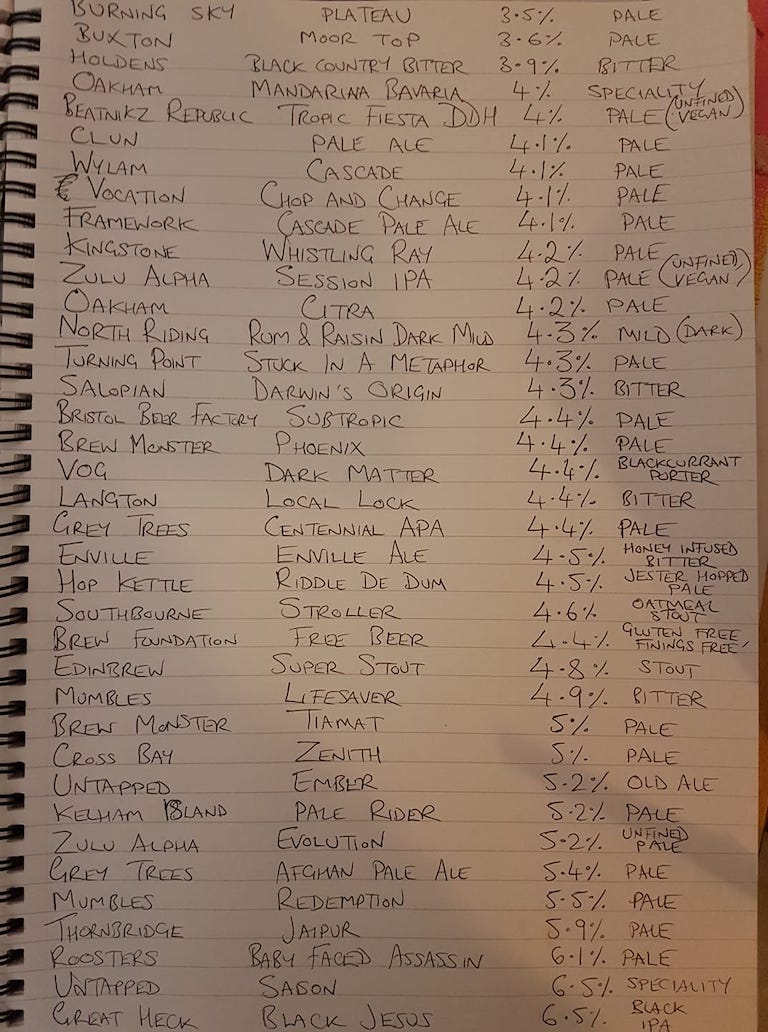 BURNING SKY PLATEAU 3.5% PALE
BUXTON MOOR TOP 3.6% PALE
HOLDENS BLACK COUNTRY BITTER 3.9% BITTER
OAKHAM MANDARINA BAVARIA 4% SPECIALITY
BEATNIKZ REPUBLIC TROPIC FIESTA DDH 4% PALE (UNFINED/VEGAN)
CLUN PALE ALE 4.1% PALE
WYLAM CASCADE 4.1% PALE
VOCATION CHOP AND CHANGE 4.1% PALE
FRAMEWORK CASCADE PALE ALE 4.1% PALE
KINGSTONE WHISTLING RAY 4.2% PALE
ZULU ALPHA SESSION IPA 4.2% PALE (UNFINED/VEGAN)
OAKHAM CITRA 4.2% PALE
NORTH RIDING RUM & RAISIN DARK MILD 4.3% MILD (DARK)
TURNING POINT STUCK IN A METAPHOR 4.3% PALE
SALOPIAN DARWIN'S ORIGIN 4.3% BITTER
BRISTOL BEER FACTORY SUBTROPIC 4.4% PALE
BREW MONSTER PHOENIX 4.4% PALE
VOG DARK MATTER 4.4% BLACKCURRANT PORTER
LANGTON LOCAL LOCK 4.4% BITTER
GREY TREES CENTENNIAL APA 4.4% PALE
ENVILLE ENVILLE ALE 4.5% HONEY INFUSED BITTER
HOP KETTLE RIDDLE DE DUM 4.5% JESTER HOPPED PALE
SOUTHBOURNE STROLLER 4.6% OATMEAL STOUT
BREW FOUNDATION FREE BEER 4.4% GLUTEN FREE, FININGS FREE
EDINBREW SUPER STOUT 4.8% STOUT
MUMBLES LIFESAVER 4.9% BITTER
BREW MONSTER TIAMAT 5% PALE
CROSS BAY ZENITH 5% PALE
UNTAPPED EMBER 5.2% OLD ALE
KELHAM ISLAND PALE RIDER 5.2% PALE
ZULU ALPHA EVOLUTION 5.2% UNFINED PALE
GREY TREES AFGHAN PALE ALE 5.4% PALE
MUMBLES REDEMPTION 5.5% PALE
THORNBRIDGE JAIPUR 5.9% PALE
ROOSTERS BABY FACED ASSASSIN 6.1% PALE
UNTAPPED SAISON 6.5% SPECIALITY
GREAT HECK BLACK JESUS 6.5% BLACK IPA